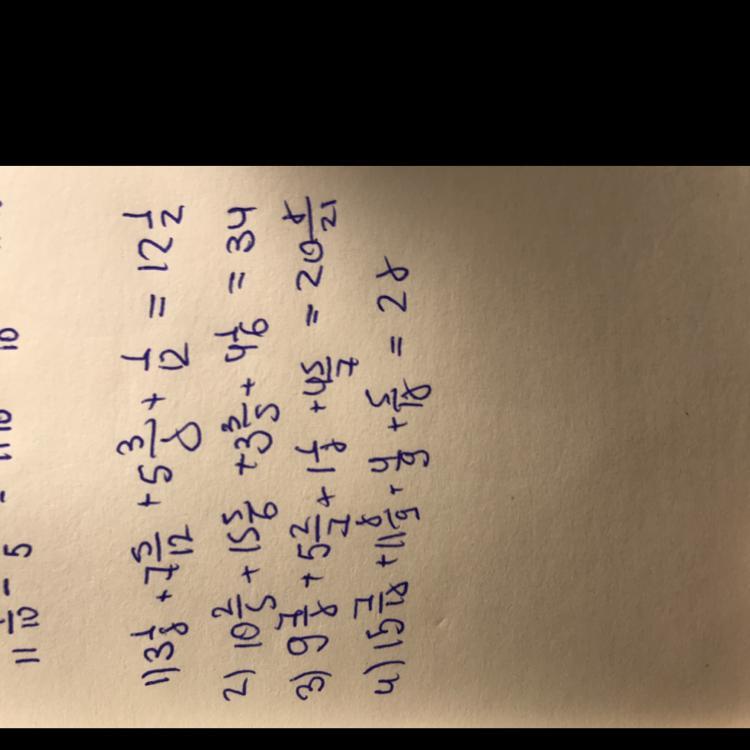 1) 3 1/8 + 7 5/12 + 5 3/8 + 1/12 = 12 1/2
2) 10 2/5 + 15 5/6 + 3 3/5 + 4 1/6 = 34
3) 9 7/8 + 5 2/7 + 1 1/8 + 4 5/7 = 20 8/21
4) 15 7/18 + 11 8/9 + 4/9 + 5/18 = 28